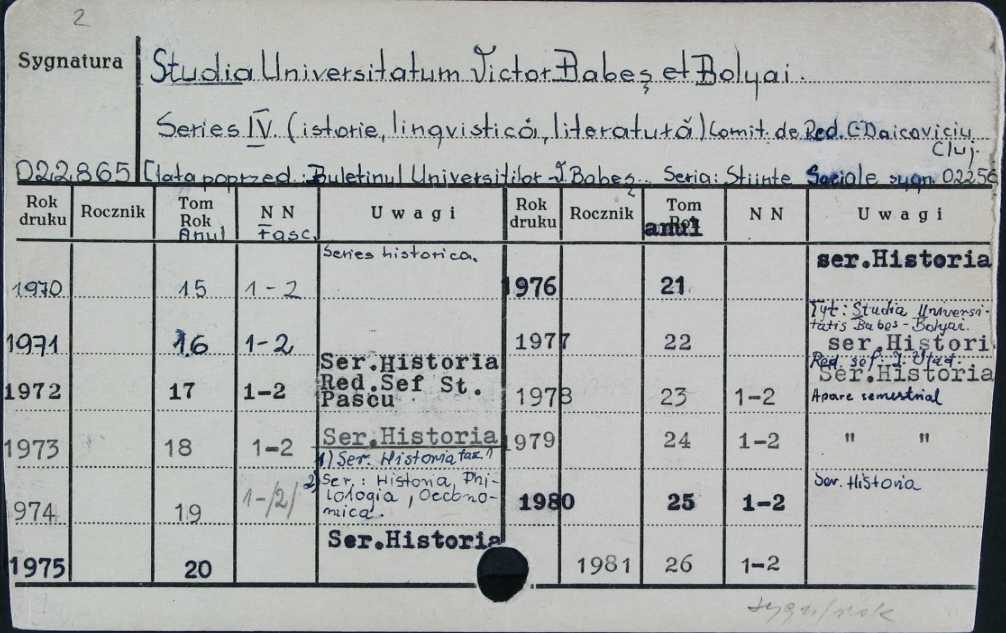 2
Sygnatura
Studia Universitatum Victor Babeş et Bolyai.
Series IV. (istorie, lingvistică, literatură) Comit. de Red. C. Daicoviciu
Cluj.
022.865 [lata poprzed.: Buletinul Universităților V. Babeş... Seria: Stiinte Sociale sygn. 02256
Rok druku Rocznik Tom Rok Anul N N Fasc. Uwagi Rok druku Rocznik Tom Rok anul N N Uwagi
1970 15 1-2 Series historica. 1976 21 ser.Historia
1971 16 1-2 1977 22 Tyt: Studia Universi-
tatis Babeş-Bolyai.
ser.Histori
1972 17 1-2 Ser.Historia
Red.Sef St.
Pascu
1978 23 1-2 Red. sef: I. Vlad.
Ser.Historia
Apare semestrial
1973 18 1-2 Ser.Historia 1979 24 1-2 " "
1) Ser. Historia fasc. 1
974 19 1-/2/ 2) Ser.: Historia, Phi-
lologia, Oecono-
mica.
1980 25 1-2 Ser. Historia
1975 20 Ser.Historia 1981 26 1-2